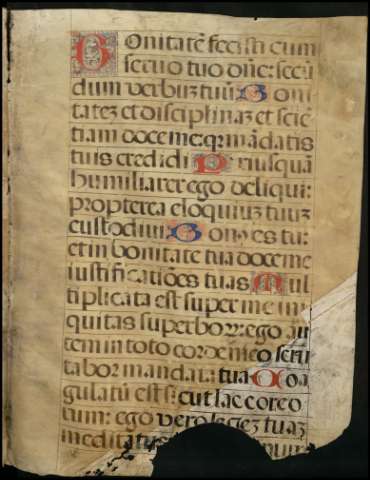 Bonitatē fecisti cum
seruo tuo dn̄e: secū
dum verbuꝫ tuū: Boni
tateꝫ et disciplinaꝫ et sciē
tiam doce me: qꝛ mādatis
tuis credidi Priusquā
humiliarer ego deliqui:
propterea eloquiuꝫ tuuꝫ
custodiui: Bonus es tu:
et in bonitate tua doce me
iustificatiōes tuas Mul
tiplicata est super me ini
quitas superboꝝ: ego aū
tem in toto corde meo scru
tabor mandata tua Coa
gulatū est sicut lac cor eo
rum: ego vero legeꝫ tuaꝫ
meditatus